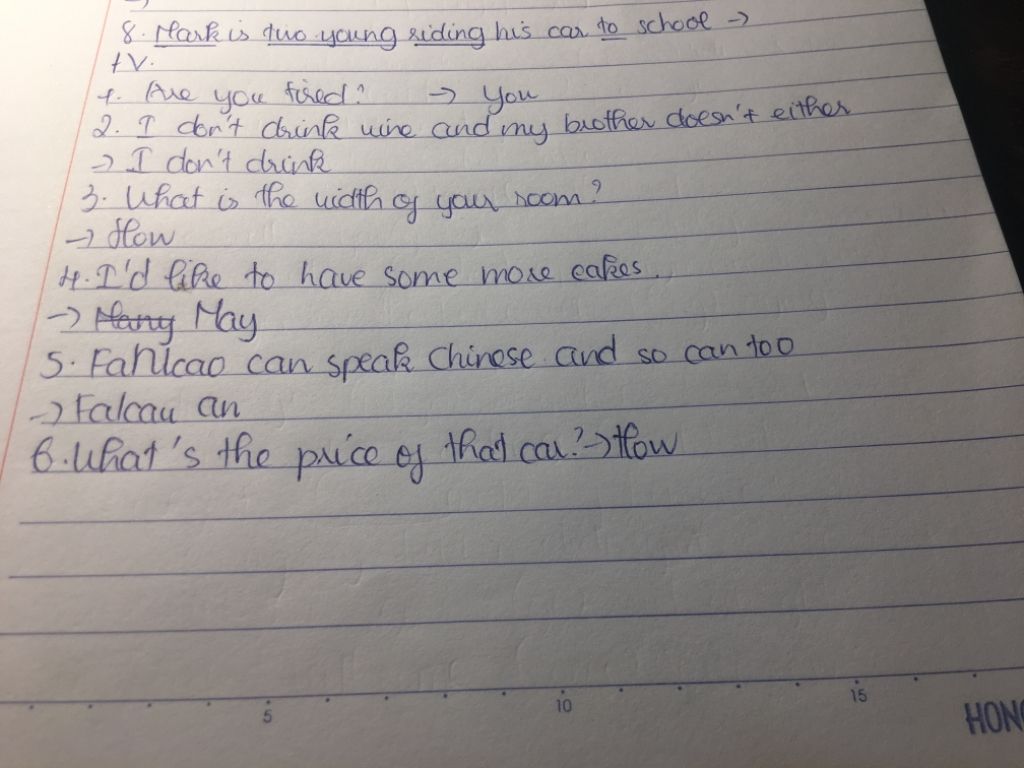 8. Mark is two young riding his car to school →
IV.
1. Are you tired? → You
2. I don't drink wine and my brother doesn't either
→ I don't drink
3. What is the width of your room?
→ How
4. I'd like to have some more cakes.
→ Many May
5. Fahlcao can speak Chinese and so can too
→ Falcau an
6. What's the price of that car? → How
5 10 15
HONG